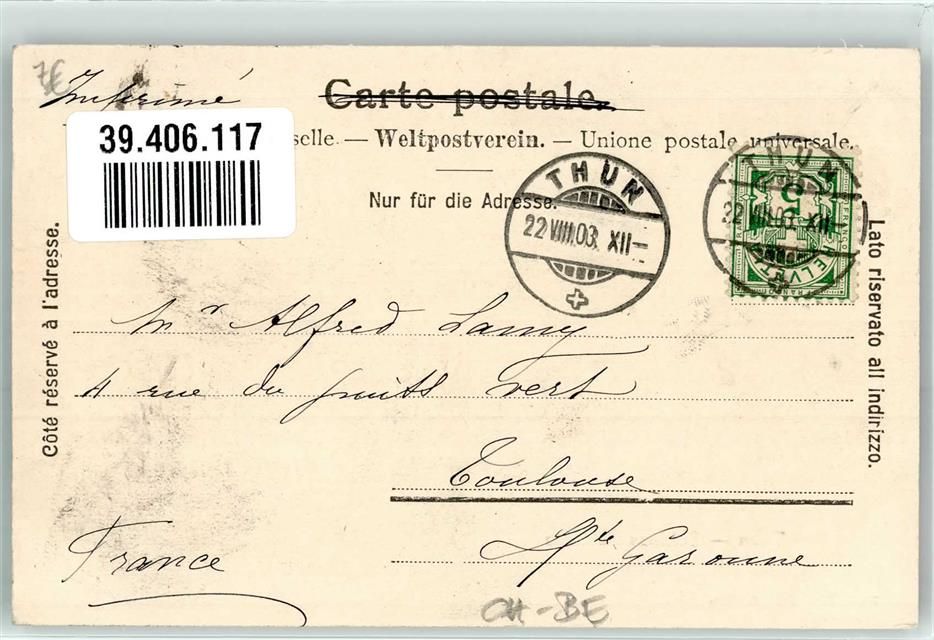 7€
Imprimé
Carte postale.
39.406.117
selle. — Weltpostverein. — Unione postale universale.
Nur für die Adresse.
THUN
22.VIII.03. XII—
THUN
22.VIII.03. XII—
5
HELVETIA
FRANCO
Côté réservé à l'adresse.
Lato riservato all indirizzo.
Mr Alfred Lamy
4 rue du puits vert
Toulouse
Hte Garonne
France
CH-BE